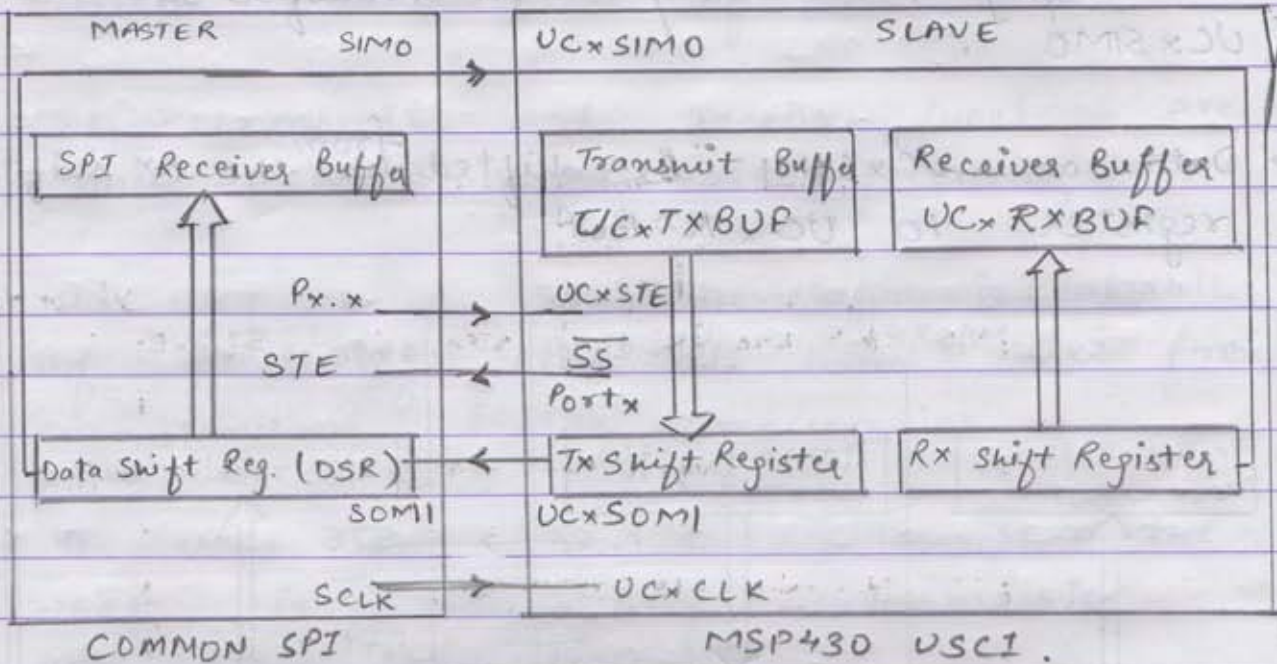 MASTER
SIMO
UCxSIMO
SLAVE
SPI Receiver Buffer
Transmit Buffer
UCxTXBUF
Receiver Buffer
UCx RXBUF
Px.x
UCxSTE
STE
SS
Portx
Data Shift Reg. (DSR)
Tx Shift Register
Rx Shift Register
SOMI
UCxSOMI
SCLK
UCxCLK
COMMON SPI
MSP430 USCI.